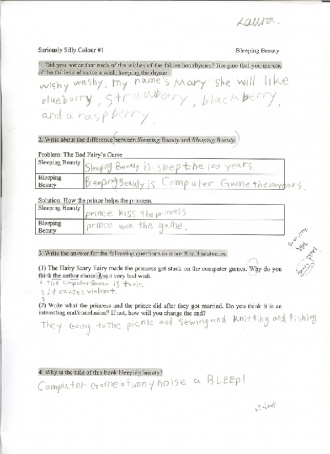 Laura.
Seriously Silly Colour #1 Bleeping Beauty
1. Did you notice that each of the wishes of the fairies has rhymes? Imagine that you are one
of the fairies, make a wish, keeping the rhyme.
wishy washy, my name's Mary she will like
blueberry, strawberry, blackberry,
and a raspberry.
2. Write about the difference between Sleeping Beauty and Bleeping Beauty.
Problem: The Bad Fairy's Curse
Sleeping Beauty Sleeping Beauty is sleep the 100 years.
Bleeping Beauty Bleeping Beauty is Computer Game the 100 years.
Solution: How the prince helps the princess.
Sleeping Beauty prince kiss the princess
Bleeping Beauty prince won the game.
3. Write the answer for the following questions in more than 3 sentences.
(1) The Hairy Scary Fairy made the princess get stuck on the computer games. Why do you
think the author chose it as a very bad wish.
1. The Computer Game is
2. it causes violent.
3
(2) Write what the princess and the prince did after they got married. Do you think it is an
interesting end/conclusion? If not, how will you change the end?
They going to the picnic and sewing and knitting and fishing
4. Why is the title of this book Bleeping Beauty?
Computer Game funny noise a BLEEP!
violent